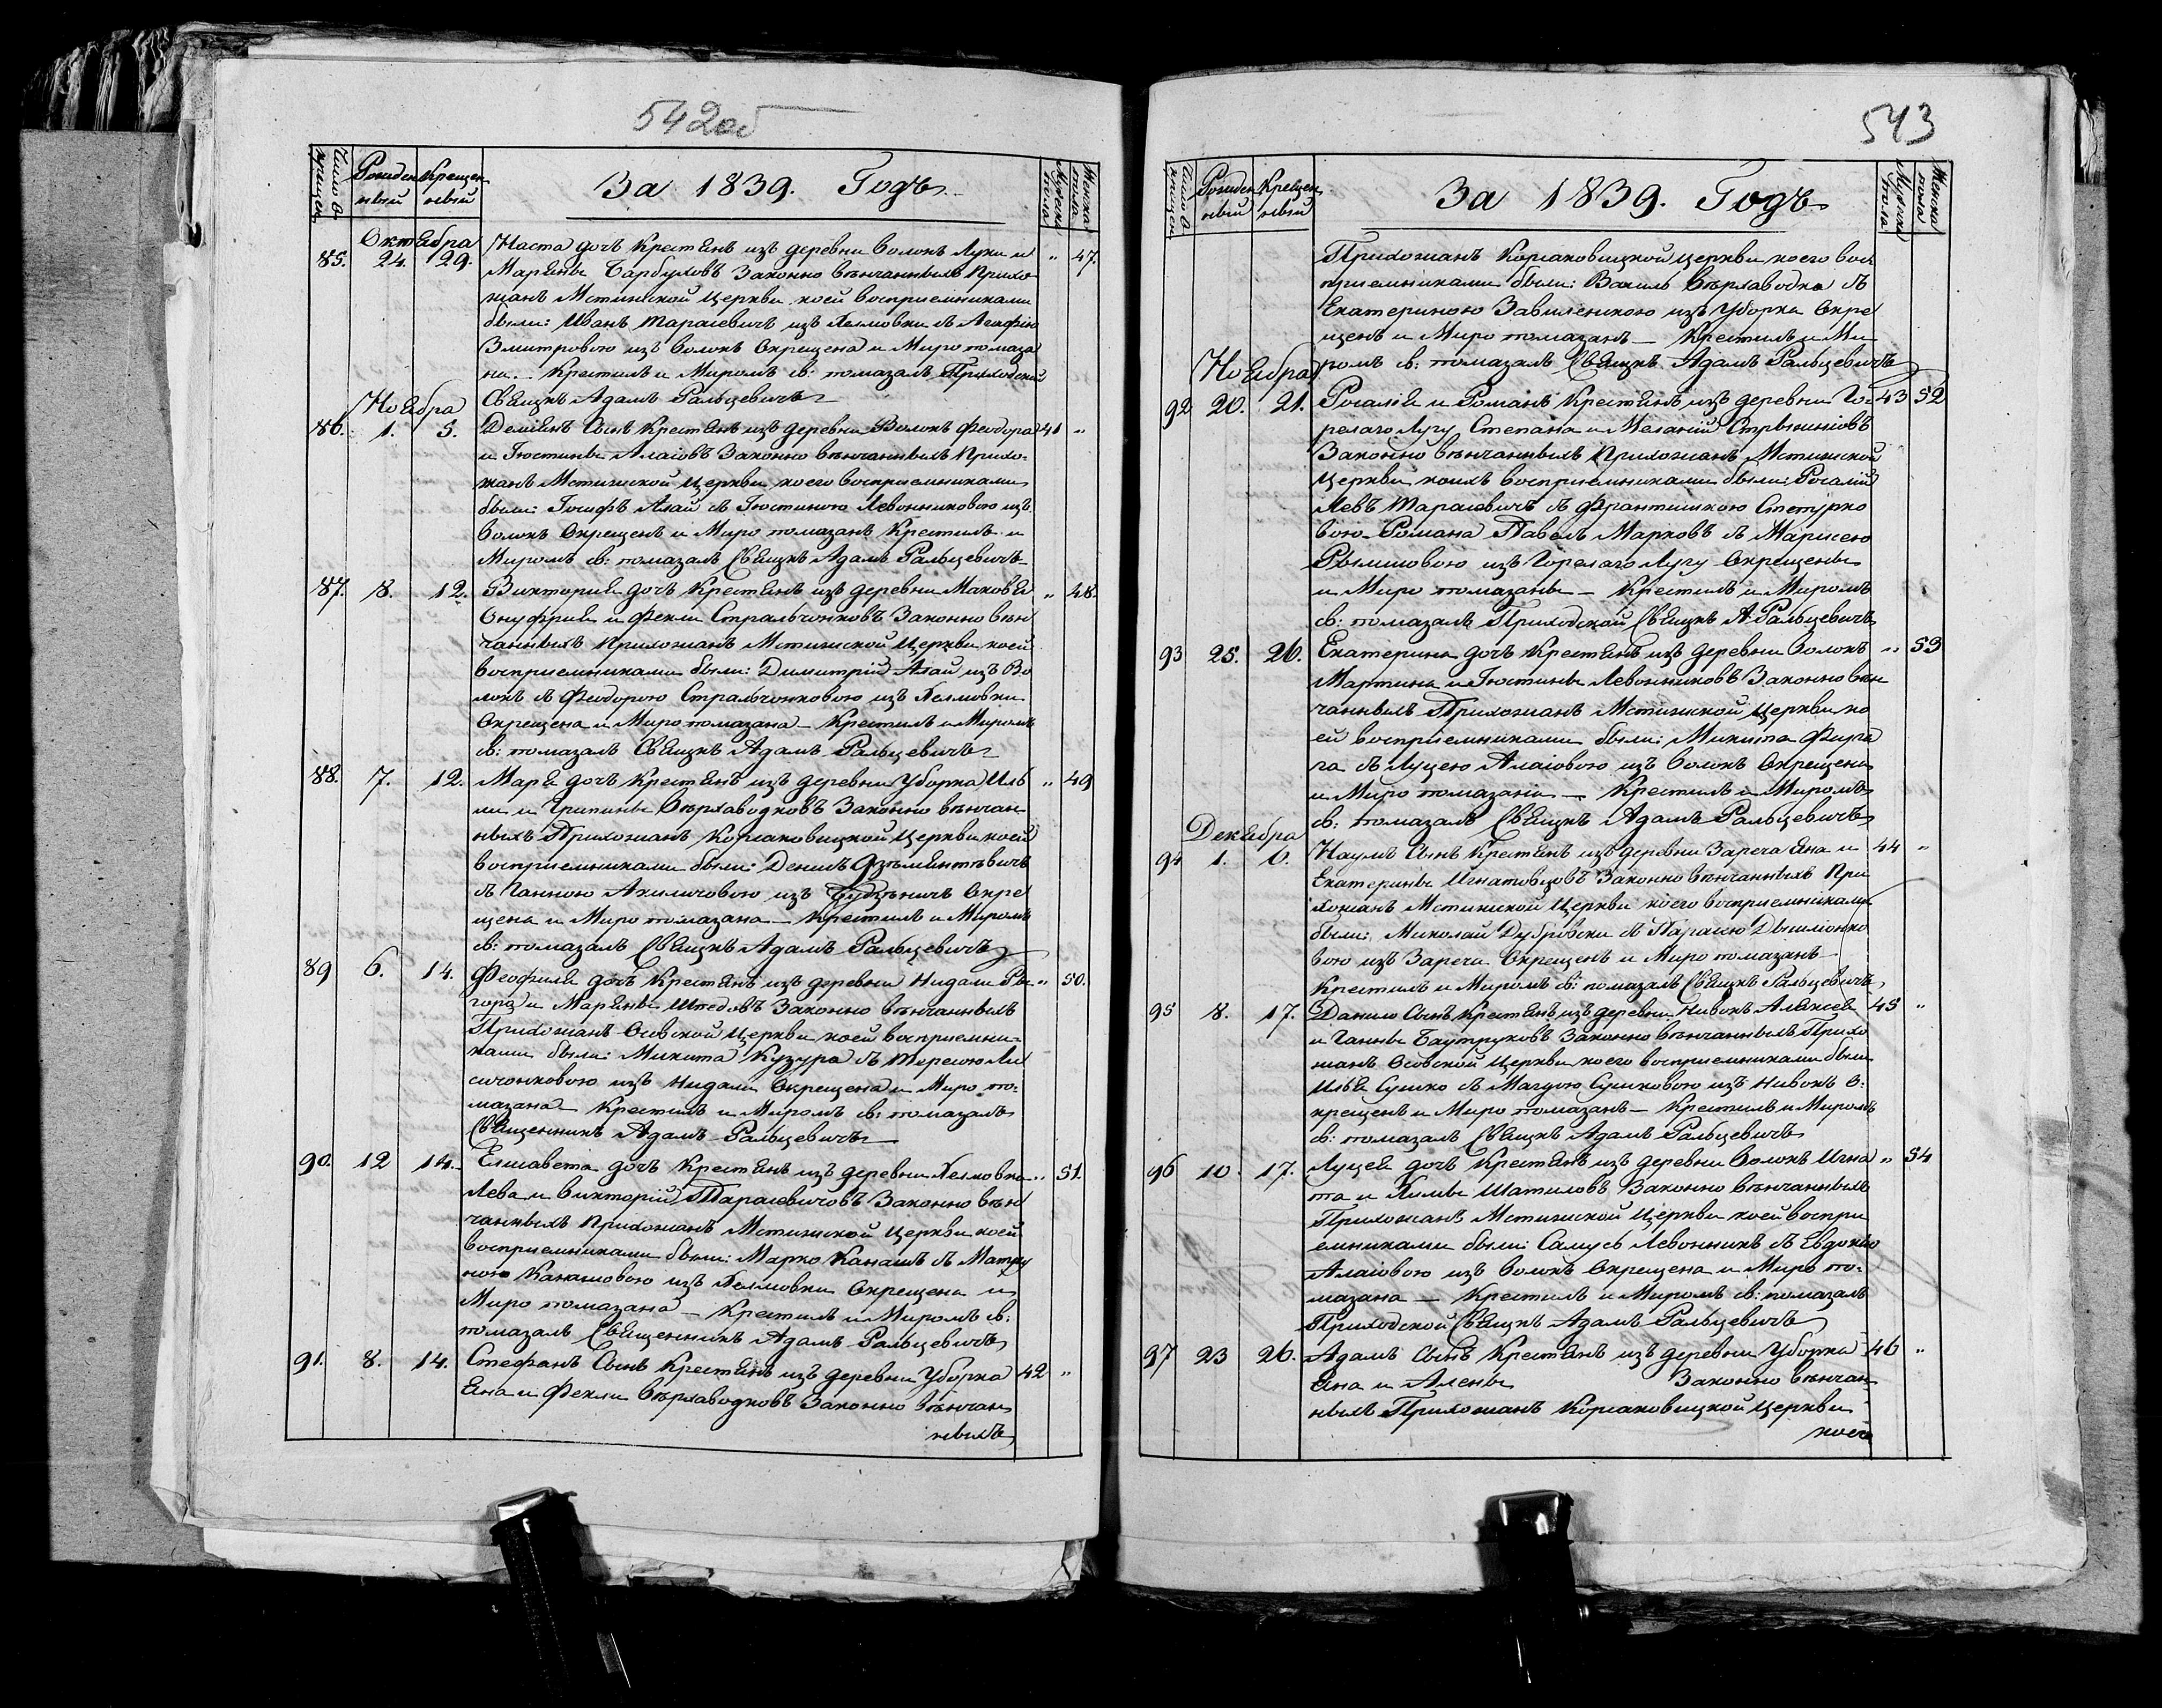 542об
Число о крещен.
Рожден ный
Крещен ный
За 1839. Годъ.
Мужеска пола
Женска пола
Октября
85. 24. 29. Наста дочъ Крестянъ изъ деревни Волокъ Луки и " 47.
Марьяны Барбуховъ Законно вѣнчанныхъ Прихо-
жанъ Мстижской Церкви коей восприемниками
были: Иванъ Тарасевичъ изъ Хелмовки съ Агафіею
Змитровою изъ Волокъ Окрещена и Миро помаза
на. Крестилъ и Миромъ св: помазалъ Приходской
Свящкъ Адамъ Ральцевичъ
Ноября
86. 1. 5. Деміянъ Сынъ Крестянъ изъ деревни Волокъ Феодора 41 "
и Іюстины Алаіовъ Законно вѣнчанныхъ Прихо-
жанъ Мстижской Церкви коего восприемниками
были: Іосифъ Алай съ Іюстиною Левонниковою изъ
Волокъ Окрещенъ и Миро помазанъ Крестилъ и
Миромъ св: помазалъ Свящкъ Адамъ Ральцевичъ
87. 8. 12. Викторія дочъ Крестянъ изъ деревни Маковя " 48.
Онуфрія и Фекли Стральчонковъ Законно вѣн
чанныхъ Прихожанъ Мстижской Церкви коей
восприемниками были: Димитрій Алай изъ Во
локъ съ Феодорою Стральчонковою изъ Хелмовки
Окрещена и Миро помазана — Крестилъ и Миромъ
св: помазалъ Свящкъ Адамъ Ральцевичъ
88. 7. 12. Маря дочъ Крестянъ изъ деревни Уборка Иль " 49
ли и Грипины Вѣрхаводковъ Законно вѣнчан-
ныхъ Прихожанъ Корсаковицкой Церкви коей
восприемниками были: Денисъ
съ Ганною Акиличовою изъ Окре
щена и Миро помазана — Крестилъ и Миромъ
св: помазалъ Свящкъ Адамъ Ральцевичъ
89 6. 14. Феофиля дочъ Крестянъ изъ деревни Нидали " 50.
гора и Марьяны Шведовъ Законно вѣнчанныхъ
Прихожанъ Осовской Церкви коей восприемни-
ками были: Микита Кузура съ Тересою Ли
сичонковою изъ Нидали Окрещена и Миро по-
мазана — Крестилъ и Миромъ св: помазалъ
Священникъ Адамъ Ральцевичъ
90. 12 14. Елисавета дочъ Крестянъ изъ деревни Хелмовка " 51.
Лева и Викторіи Тарасевичовъ Законно вѣн
чанныхъ Прихожанъ Мстижской Церкви коей
восприемниками были: Марко Канашъ съ Матру
ною Канашовою изъ Хелмовки Окрещена и
Миро помазана — Крестилъ и Миромъ св:
помазалъ Священникъ Адамъ Ральцевичъ
91. 8. 14. Стефанъ Сынъ Крестянъ изъ деревни Уборка 42 "
Яна и Фекли Вѣрхаводковъ Законно вѣнчан
ныхъ
543
Число о крещен.
Рожден ный
Крещен ный
За 1839. Годъ
Мужеска пола
Женска пола
Прихожанъ Корсаковицкой Церкви коего вос
приемниками были: Василь Вѣрхаводка съ
Екатериною Завиленкою изъ Уборка Окре
щенъ и Миро помазанъ — Крестилъ и Ми
ромъ св: помазалъ Свящкъ Адамъ Ральцевичъ
Ноября
92 20. 21. Рогалія и Романъ Крестянъ изъ деревни Го- 43 52
релаго Лугу Степана и Меланіи
Законно вѣнчанныхъ Прихожанъ Мстижской
Церкви коихъ восприемниками были: Рогаліи
Левъ Тарасевичъ съ Франтишкою Стетурко
вою Романа Павелъ Марковъ съ Марысею
Рымшовою изъ Горелаго Лугу Окрещены
и Миро помазаны — Крестилъ и Миромъ
св: помазалъ Приходской Свящкъ А. Ральцевичъ
93 25. 26. Екатерина дочъ Крестянъ изъ деревни Волокъ " 53
Мартина и Іюстины Левонниковъ Законно вѣн
чанныхъ Прихожанъ Мстижской Церкви ко
ей восприемниками были: Микита Фира
га съ Луцею Алаіовою изъ Волокъ Окрещена
и Миро помазана — Крестилъ и Миромъ
св: помазалъ Свящкъ Адамъ Ральцевичъ
Декабря
94 1. 6. Наумъ Сынъ Крестянъ изъ деревни Зареча Яна и 44 "
Екатерины Игнатовцовъ Законно вѣнчанныхъ При
хожанъ Мстижской Церкви коего восприемниками
были: Миколай Дубровски съ Параскою Дышлюнко
вою изъ Зареча Окрещенъ и Миро помазанъ
Крестилъ и Миромъ св: помазалъ Свящкъ Ральцевичъ
95 8. 17. Данило Сынъ Крестянъ изъ деревни Нивокъ Алексея 45 "
и Ганны Баутруковъ Законно вѣнчанныхъ Прихо
жанъ Осовской Церкви коего восприемниками были
Илья Сушко съ Магдою Сушковою изъ Нивокъ О-
крещенъ и Миро помазанъ — Крестилъ и Миромъ
св: помазалъ Свящкъ Адамъ Ральцевичъ
96 10 17. Луцея дочъ Крестянъ изъ деревни Волокъ Игна " 54
та и Химы Шатиловъ Законно вѣнчанныхъ
Прихожанъ Мстижской Церкви коей воспри
емниками были: Самусь Левонникъ съ Евдокіею
Алаіовою изъ Волокъ Окрещена и Миро по-
мазана — Крестилъ и Миромъ св: помазалъ
Приходской Свящкъ Адамъ Ральцевичъ
97 23 26. Адамъ Сынъ Крестянъ изъ деревни Уборка 46 "
Яна и Алены Законно вѣнчан-
ныхъ Прихожанъ Корсаковицкой Церкви
коего